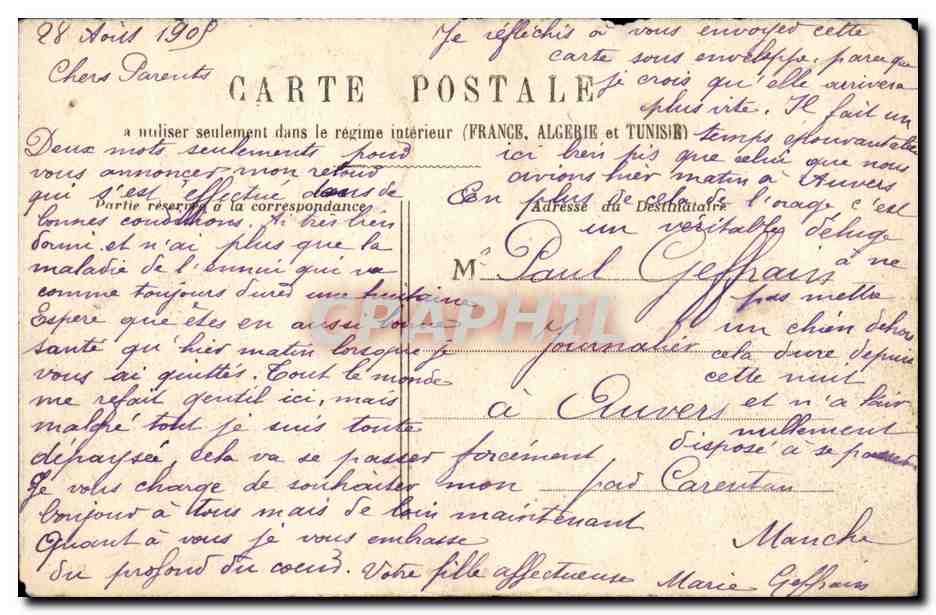 28 Août 1905
Chers Parents
CARTE POSTALE
a utiliser seulement dans le régime intérieur (FRANCE, ALGERIE et TUNISIE)
Partie réservée à la correspondance
Adresse du Destinataire
Deux mots seulements pour
vous annoncer mon retour
qui s'est effectué dans de
bonnes conditions. Ai très bien
dormi et n'ai plus que la
maladie de l'ennui qui va
comme toujours durer une huitaine
Espère que êtes en aussi bonne
santé qu'hier matin lorsque je
vous ai quittés. Tout le monde
me refait gentil ici, mais
malgré tout je suis toute
dépaysée, cela va se passer forcément
Je vous charge de souhaiter mon
bonjour à tous mais de loin maintenant
Quant à vous je vous embrasse
du profond du coeur. Votre fille affectueuse
Marie Geffrain
Je réfléchis à vous envoyer cette
carte sous enveloppe, parce que
je crois qu'elle arrivera
plus vite. Il fait un
temps épouvantable
ici bien pis que celui que nous
avions hier matin à Auvers
En plus de cela de l'orage c'est
un véritable déluge
à ne
pas mettre
un chien dehors
cela dure depuis
cette nuit
et n'a l'air
nullement
disposé à se passer
Mr Paul Geffrain
Journalier
à Auvers
par Carentan
Manche
CRAPHIL